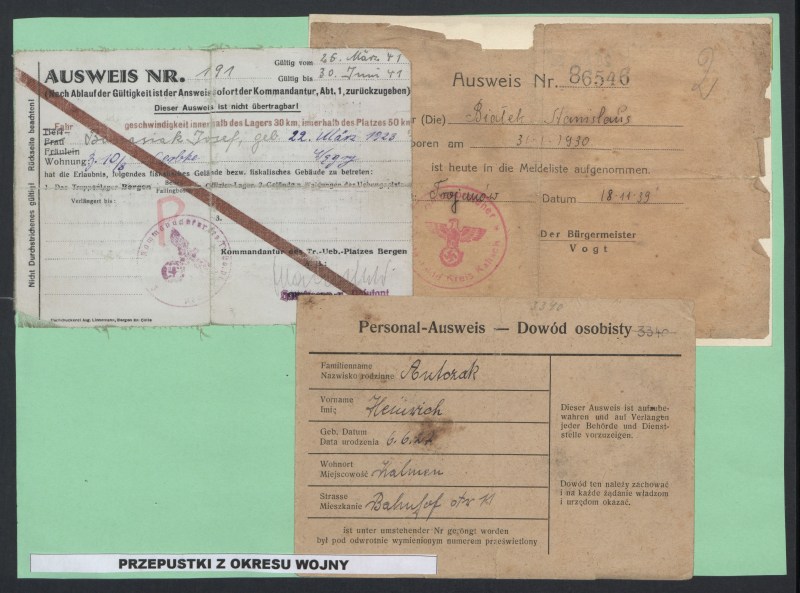 AUSWEIS NR. 191
Gültig vom 26. März 41
Gültig bis 30. Juni 41
(Nach Ablauf der Gültigkeit ist der Ausweis sofort der Kommandantur, Abt. 1, zurückzugeben)
Dieser Ausweis ist nicht übertragbar!
Fahrgeschwindigkeit innerhalb des Lagers 30 km, innerhalb des Platzes 50 km
Herr
Frau Josef, geb. 22. März 1923
Fräulein
Wohnung:
hat die Erlaubnis, folgendes fiskalisches Gelände bezw. fiskalisches Gebäude zu betreten:
1. Das Truppenlager Bergen
Verlängert bis:
P
Kommandantur des Tr.-Ueb.-Platzes Bergen
Nicht Durchstrichenes gültig! Rückseite beachten!
Ausweis Nr. 86546
2
(Die) Białek Stanislaus
boren am 31.1.1930
ist heute in die Meldeliste aufgenommen.
Trojanów Datum 18.11.39
Der Bürgermeister
Vogt
3340
Personal-Ausweis — Dowód osobisty 3340
Familienname
Nazwisko rodzinne: Antczak
Vorname
Imię: Heinrich
Geb. Datum
Data urodzenia 6.6.
Wohnort
Miejscowość Kalmen
Strasse
Mieszkanie Bahnhof str 11
Dieser Ausweis ist aufzube-
wahren und auf Verlangen
jeder Behörde und Dienst-
stelle vorzuzeigen.
Dowód ten należy zachować
i na każde żądanie władzom
i urzędom okazać.
ist unter umstehender Nr geröngt worden
był pod odwrotnie wymienionym numerem prześwietlony
PRZEPUSTKI Z OKRESU WOJNY